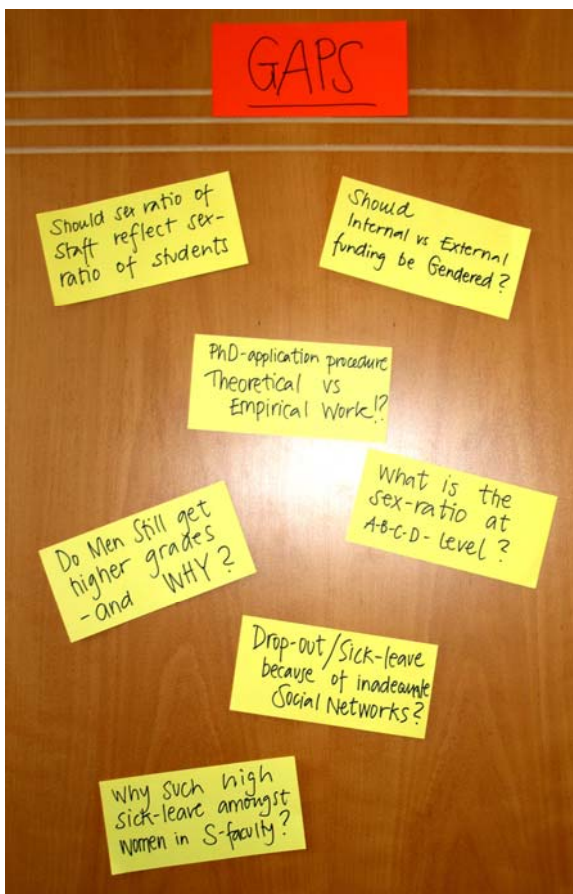 GAPS
Should sex ratio of
staff reflect sex-
ratio of students
Should
Internal vs External
funding be Gendered?
PhD-application procedure
Theoretical vs
Empirical Work!?
What is the
sex-ratio at
A-B-C-D-level?
Do Men Still get
higher grades
-and WHY?
Drop-out/Sick-leave
because of inadequate
Social Networks?
Why such high
sick-leave amongst
women in S-faculty?